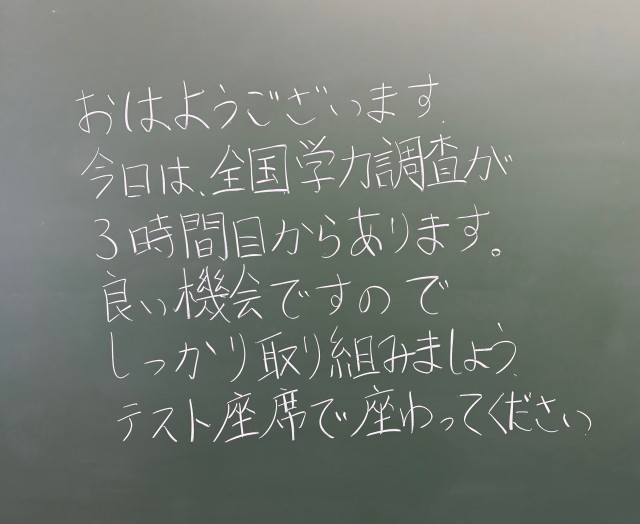 おはようございます.
今日は、全国学力調査が
3時間目からあります。
良い機会ですので
しっかり取り組みましょう.
テスト座席で座わってください